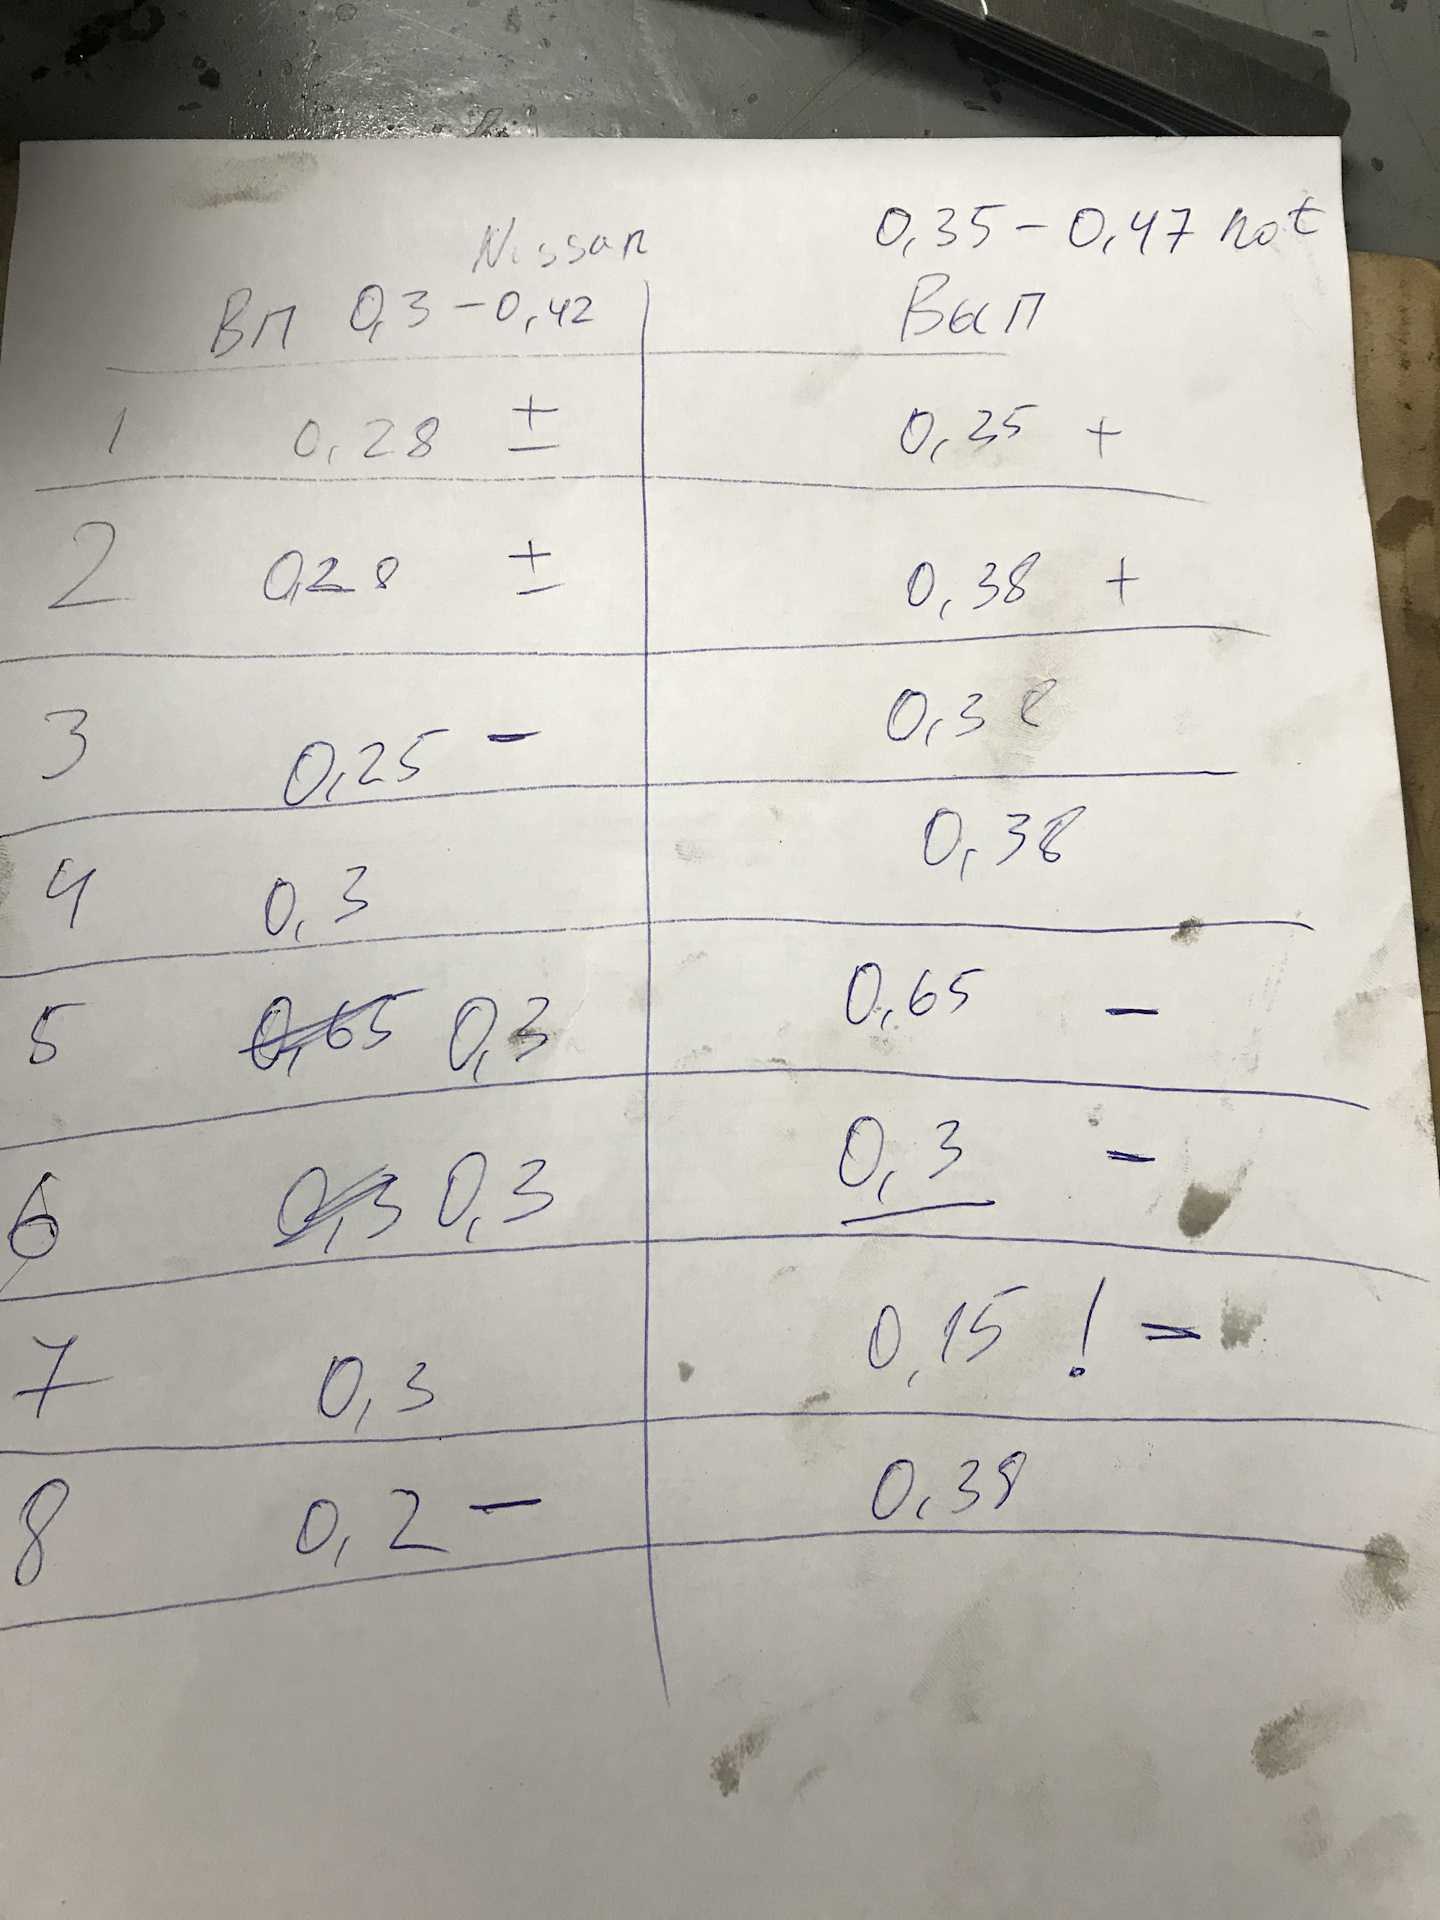 Nissan 0,35 - 0,47 hot
Вп 0,3 - 0,42 Вып
1 0,28 ± 0,35 +
2 0,28 ± 0,38 +
3 0,25 - 0,38
4 0,3 0,38
5 0,65 0,3 0,65 -
6 0,3 0,3 0,3 -
7 0,3 0,15 ! -
8 0,2 - 0,38